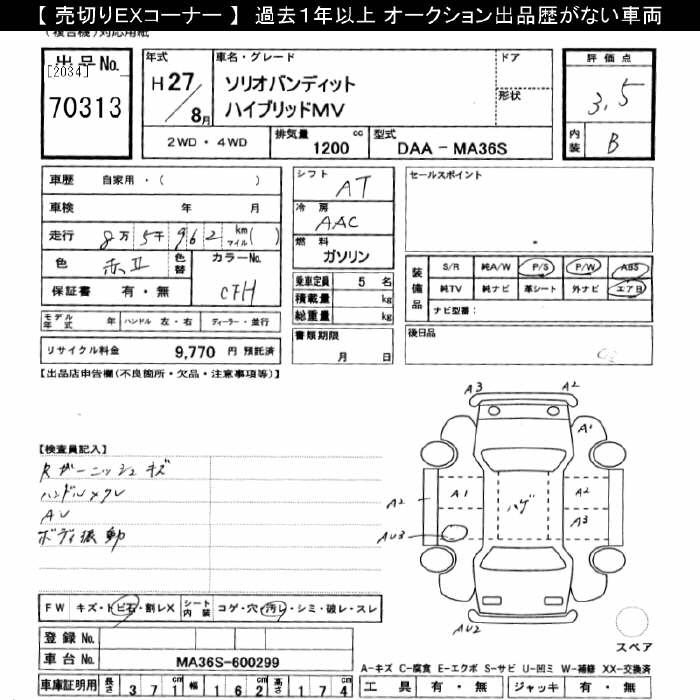 【 売切りEXコーナー 】 過去１年以上 オークション出品歴がない車両
(複合機)対応用紙
出品No.
[2034]
70313
年式
H27/8月
車名・グレード
ソリオバンディット
ハイブリッドMV
ドア
形状
評価点
3.5
内装
B
2WD・4WD
排気量
1200 cc
型式
DAA - MA36S
車歴 自家用・( )
車検 年 月
走行 8万5千962 km マイル( )
色 赤II 色替
カラーNo.
CFH
保証書 有・無
モデル年式 年 ハンドル 左・右 ディーラー・並行
リサイクル料金 9,770 円 預託済
シフト
AT
冷房
AAC
燃料
ガソリン
乗車定員 5 名
積載量 kg
総重量 kg
書類期限
月 日
セールスポイント
装備品
S/R 純A/W P/S P/W ABS
純TV 純ナビ 革シート 外ナビ エアB
ナビ型番:
後日品
【出品店申告欄(不良箇所・欠品・注意事項等)】
【検査員記入】
Rガーニッシュキズ
ハンドルメクレ
AU
ボディ振動
A3 A2
A1
A2 A1 ハゲ A2
A3
AU3
AU2
スペア
FW キズ・トビ石・割レX シート内装 コゲ・穴・汚レ・シミ・破レ・スレ
登録No.
車台No. MA36S-600299
車庫証明用 長さ 371cm 幅 162cm 高さ 174cm
A-キズ C-腐食 E-エクボ S-サビ U-凹ミ W-補修 XX-交換済
工具 有・無 ジャッキ 有・無